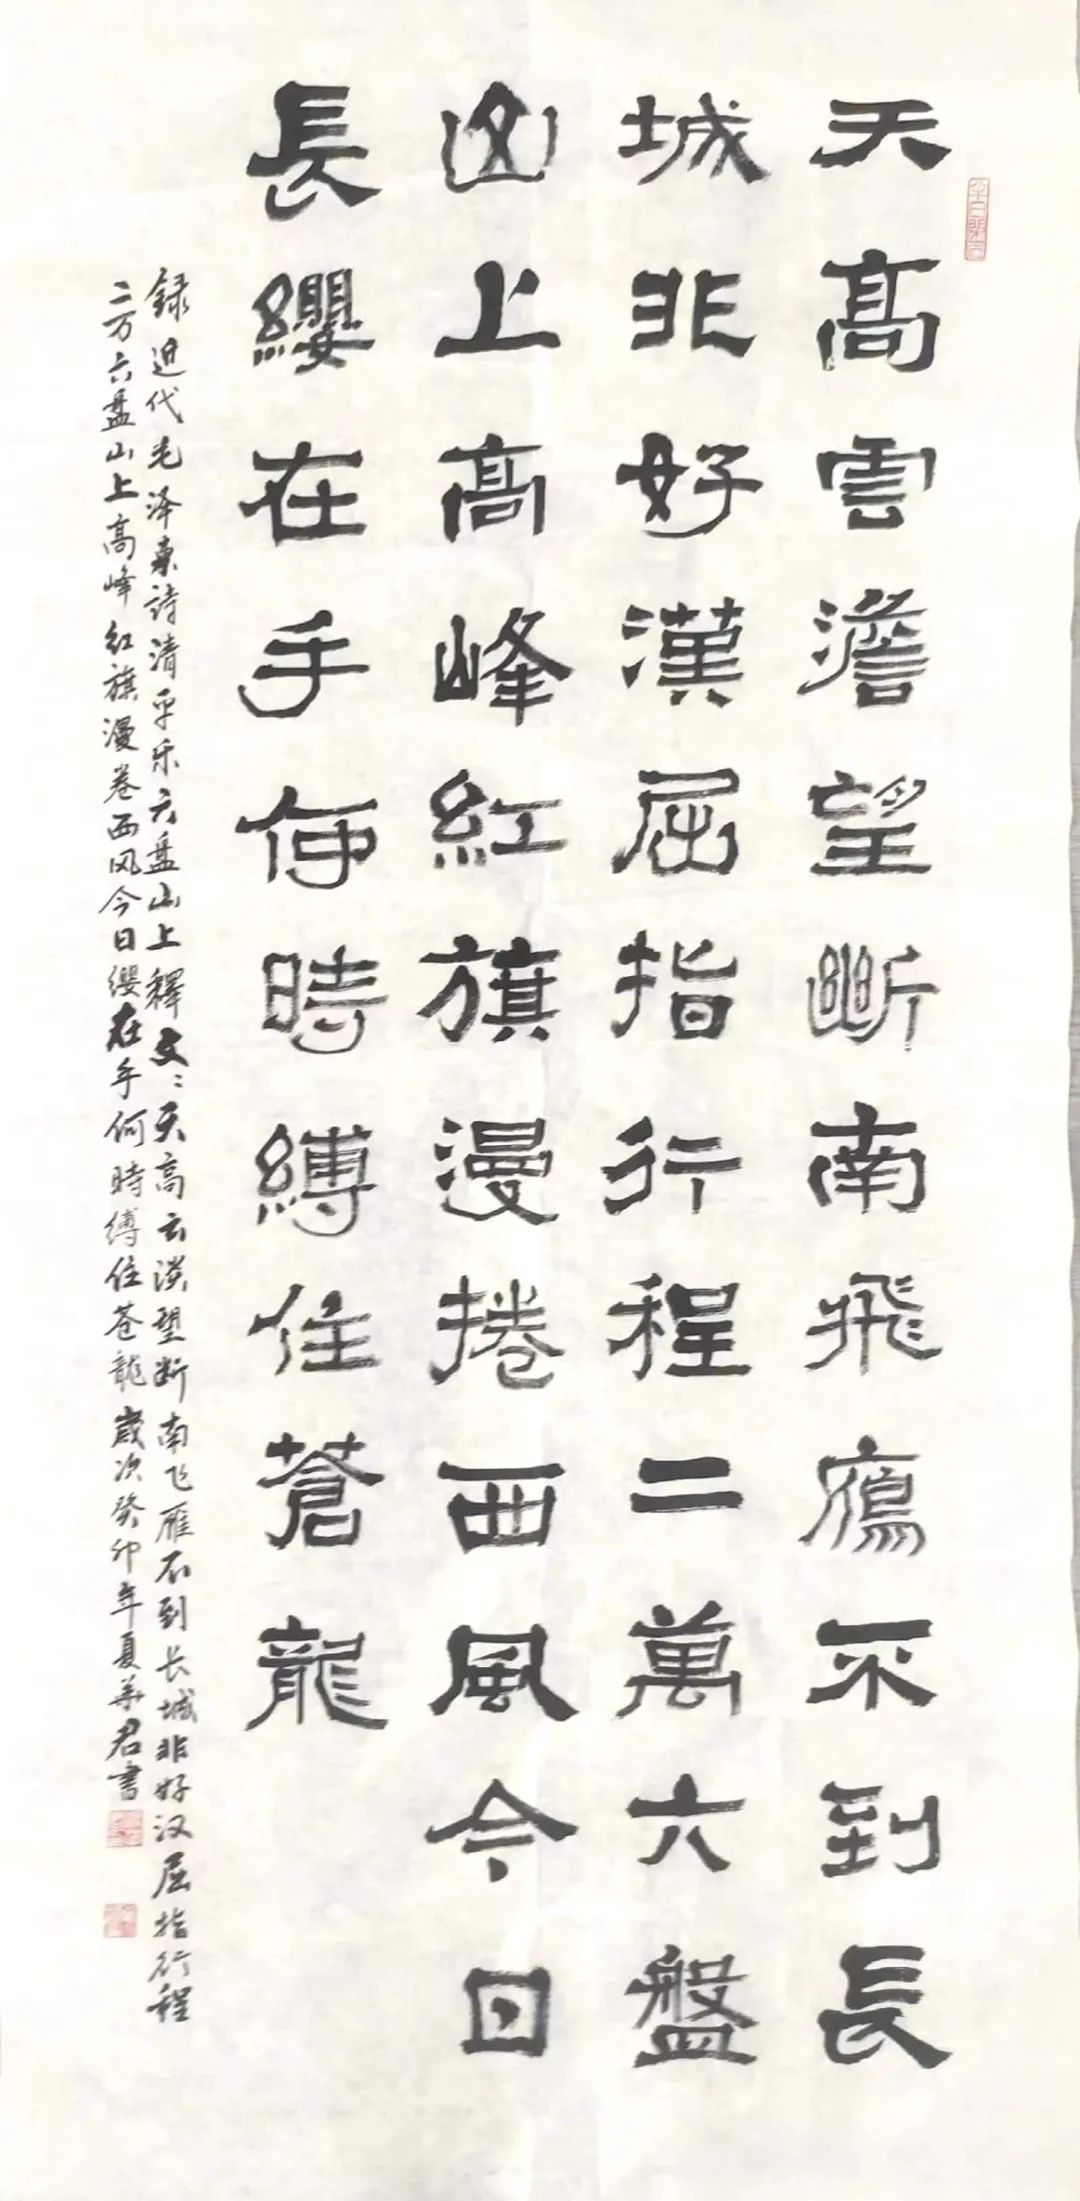 天高雲澹望斷南飛鴈不到長
城非好漢屈指行程二萬六盤
山上高峰紅旗漫捲西風今日
長纓在手何時縛住蒼龍
録近代毛泽東詩清平乐六盘山上釋文：天高云淡望断南飞雁不到长城非好汉屈指行程
二万六盘山上高峰红旗漫卷西风今日纓在手何時縛住苍龍歲次癸卯年夏華君書